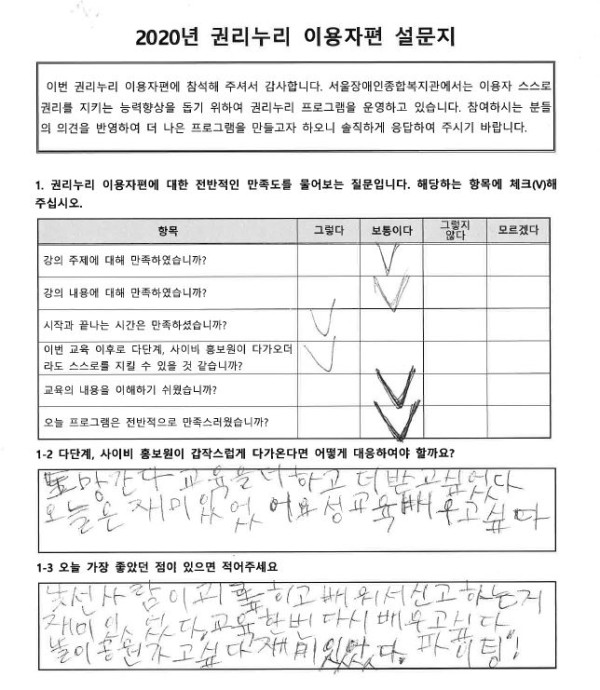 2020년 권리누리 이용자편 설문지
이번 권리누리 이용자편에 참석해 주셔서 감사합니다. 서울장애인종합복지관에서는 이용자 스스로
권리를 지키는 능력향상을 돕기 위하여 권리누리 프로그램을 운영하고 있습니다. 참여하시는 분들
의 의견을 반영하여 더 나은 프로그램을 만들고자 하오니 솔직하게 응답하여 주시기 바랍니다.
1. 권리누리 이용자편에 대한 전반적인 만족도를 물어보는 질문입니다. 해당하는 항목에 체크(V)해
주십시오.
항목 그렇다 보통이다 그렇지 않다 모르겠다
강의 주제에 대해 만족하였습니까? V
강의 내용에 대해 만족하였습니까? V
시작과 끝나는 시간은 만족하셨습니까? V
이번 교육 이후로 다단계, 사이비 홍보원이 다가오더
라도 스스로를 지킬 수 있을 것 같습니까? V
교육의 내용을 이해하기 쉬웠습니까? V
오늘 프로그램은 전반적으로 만족스러웠습니까? V
1-2 다단계, 사이비 홍보원이 갑작스럽게 다가온다면 어떻게 대응하여야 할까요?
도망간다 교육을 더 하고 더 받고싶었다
오늘은 재미있었 어요 성교육 배우고싶다
1-3 오늘 가장 좋았던 점이 있으면 적어주세요
낯선사람이 괴롭히고 배워서신고하는지
재미있었다 교육 한번 다시 배우고싶다
놀이공원가고싶다 재미있었다. 파이팅!